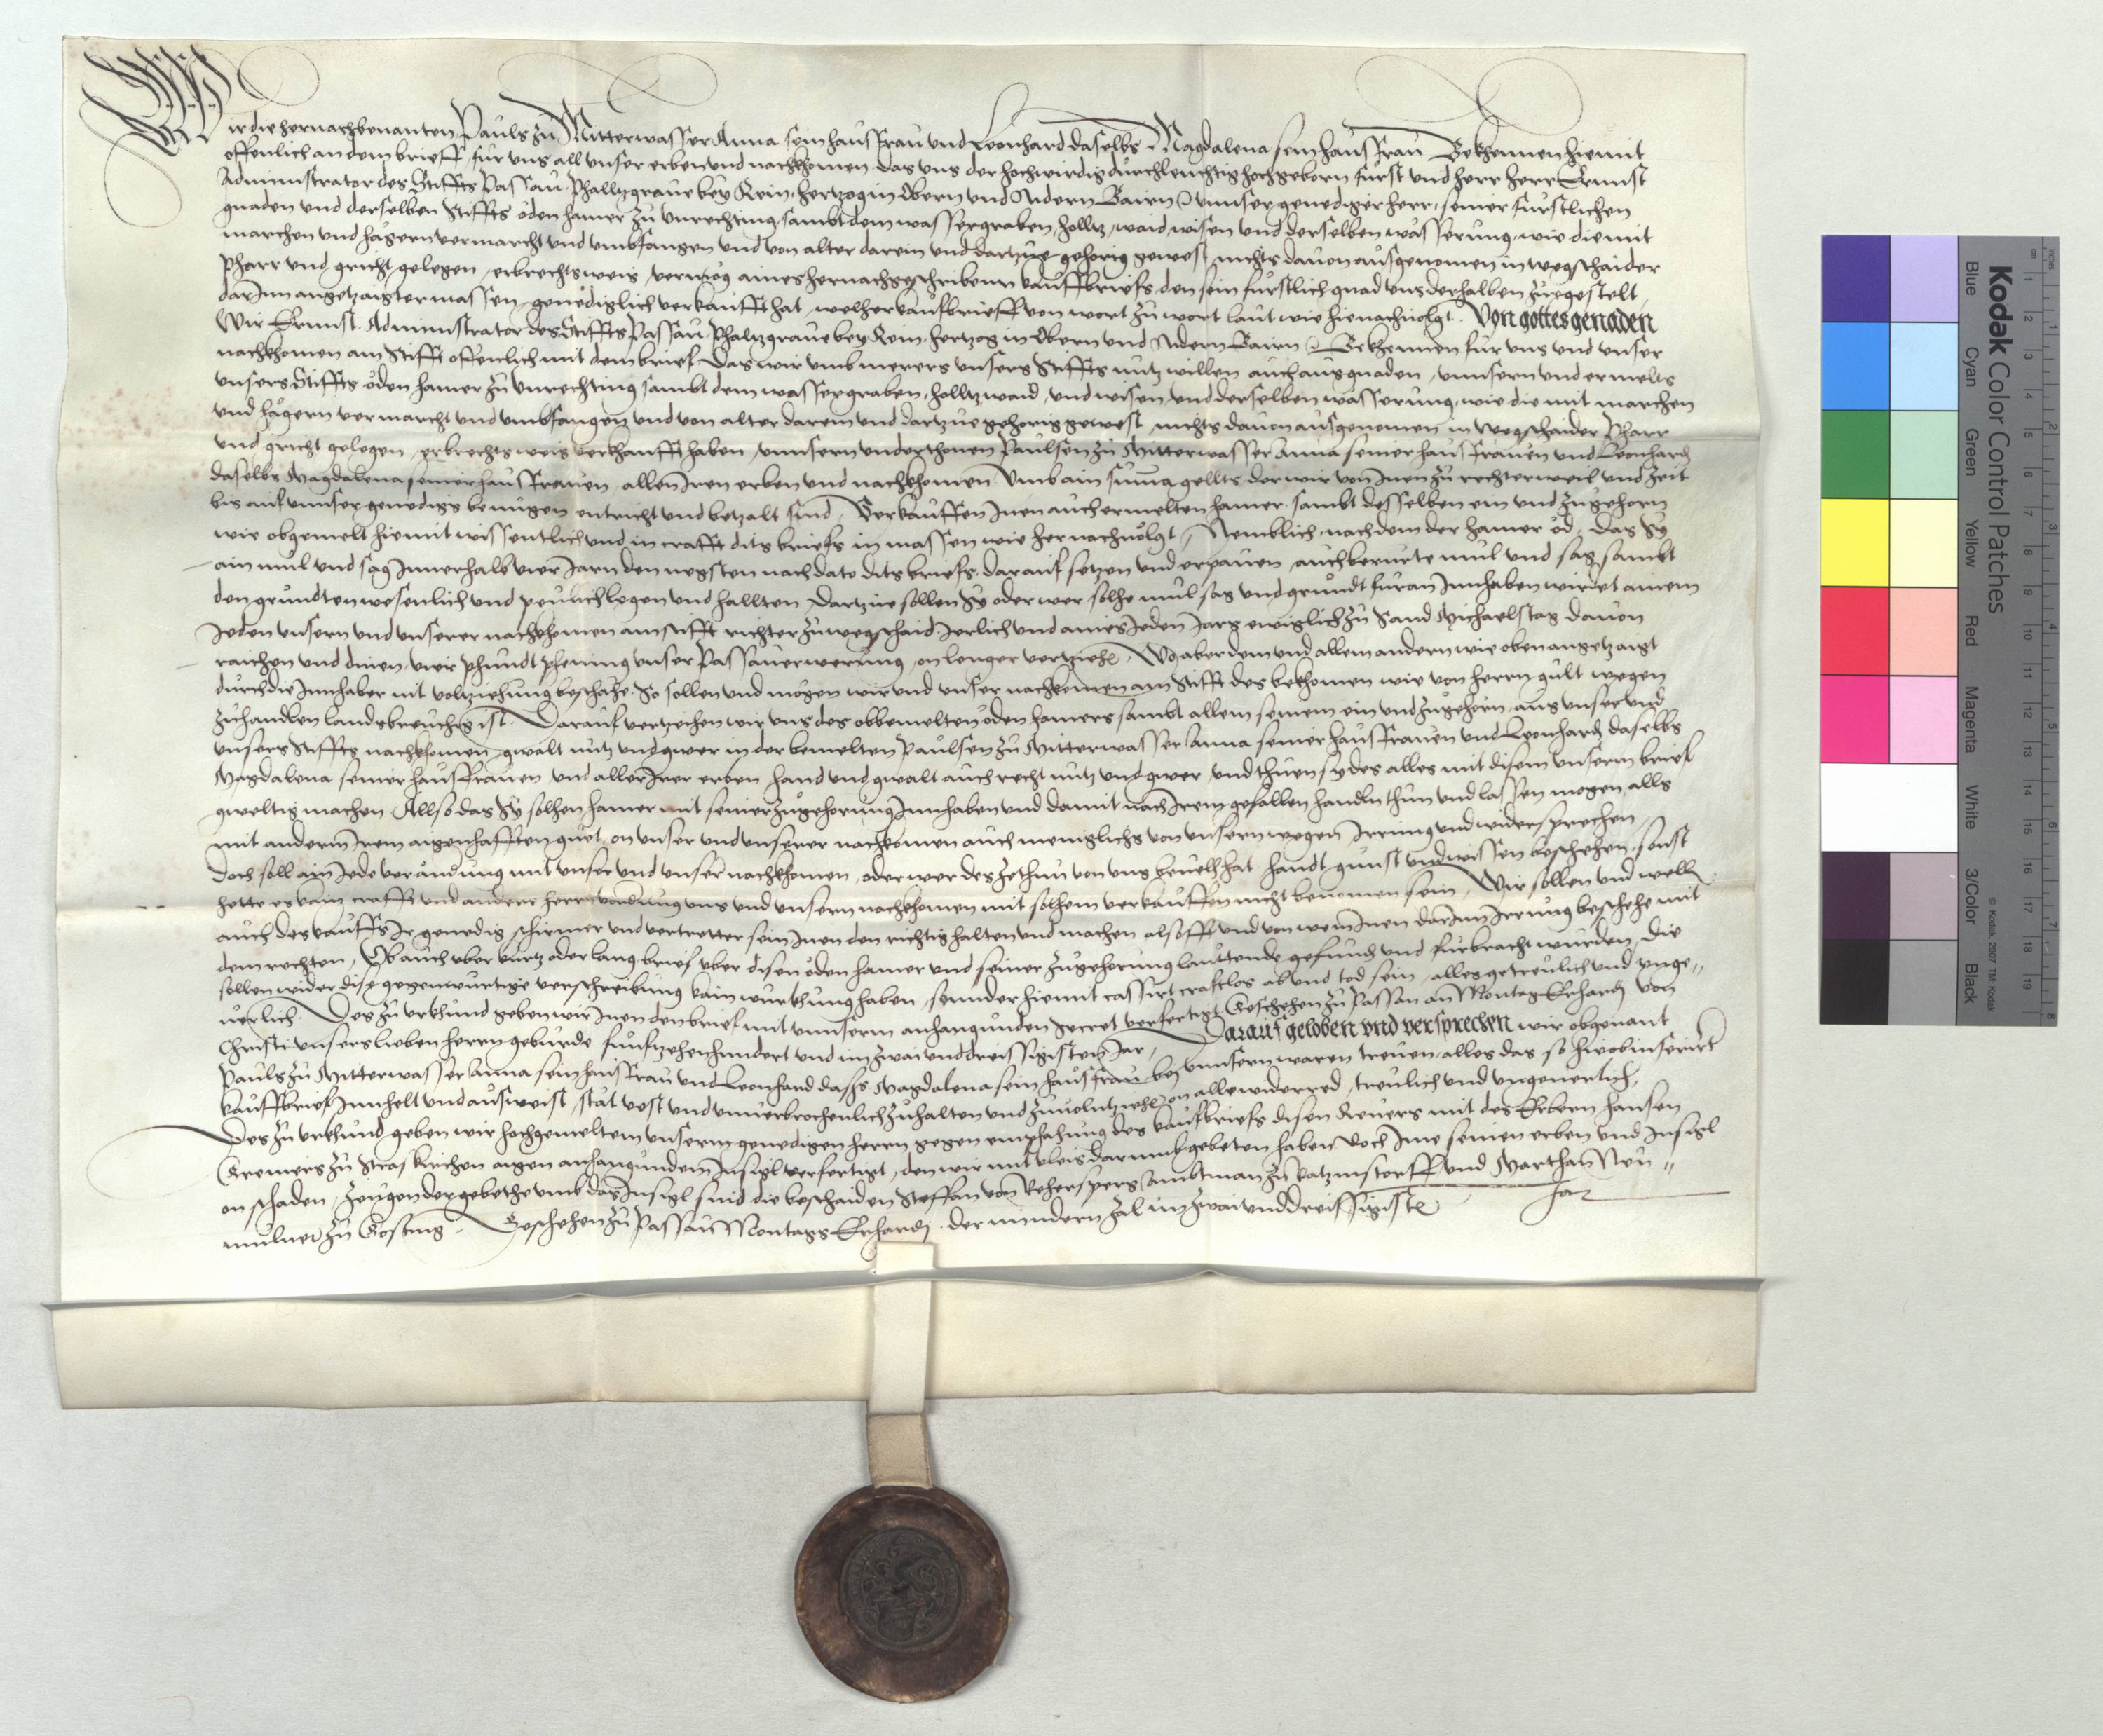 Wir die hernachbenanten Pauls zu Mitterwasser Anna sein hausfrau und Leonhard daselbs Magdalena sein hausfrau Bekhennen hiemit
offenlich an dem brieff fur uns all unser erben und nachkhomen das uns der hochwirdig durchleuchtig hochgeborn furst und herr herr Ernnst
Administrator des Stiffts Passau Phalltzgraue bey Rein hertzog in Obern und Nidern Bairn unnser genediger herr seiner furstlichen
gnaden und derselben Stiffts öden hamer zu unrechting sambt dem wassergraben holltz waid wisen und derselben wasserung wie die mit
marchen und hägern vermarcht und umbfangen und von alter darein und dartzue gehorig gewest nichts dauon ausgenomen in wegschaider
Pharr und gricht gelegen erbrechtsweis vermög aines hernachgeschribenn kauffbriefs den sein furstlich gnad uns derhalben zuegestelt
darInn angetzaigter massen genediglich verkaufft hat welher kaufbrieff von wort zu wort laut wie hienachuolgt Von gottes genaden
Wir Ernnst Administrator des Stiffts Passau Phaltzgraue bey Rein hertzog in Obern und Nidern Bairn Bekhennen fur uns und unser
nachkhomen am Stifft offenlich mit dem brief Das wir umb merers unsers Stiffts nutz willen auch aus gnaden unnsern und ermelts
unsers Stiffts öden hamer zu unrechting sambt dem wassergraben holltz waid und wisen und derselben wasserung wie die mit marchen
und hägern vermarcht und umbfangen und von alter darein und dartzue gehorig gewest nichts dauon ausgenomen in wegschaider Pharr
und gricht gelegen erbrechtsweis verkhaufft haben unnsern underthonen Paulsen zu Mitterwasser Anna seiner hausfrauen und Leonhard
daselbs Magdalena seiner hausfrauen allen Iren erben und nachkhomen Umb ain suma gellts der wir von Inen zu rechter weil und zeit
bis auf unnser genedigs benuegen entricht und betzalt sind Verkauffen Inen auch ermelten hamer sambt desselben ein und zugehorn
wie obgemelt hiemit wissentlich und in crafft dits briefs in massen wie hernachuolgt Nemblich nachdem der hamer öd das Sy
ain mul und sag Innerhalb vier Jarn den negsten nach dato dits briefs darauf setzen und erpauen auch berurte mul und sag sambt
den grundten wesenlich und peulich legen und hallten Dartzue sollen Sy oder wer solhe mul sag und grundt furan Innhaben wirdet ainem
Jeden unsern und unserer nachkhomen am stifft richter zu wegschaid Jerlich und aines Jeden Jars ewiglich zu Sand Michaelstag dauon
raichen und dinen vier phundt phening unser Passauer werung on lenger vertziehe Wo aber dem und allem andern wie oben angetzaigt
durch die Innhaber nit voltziehung beschahe So sollen und mögen wir und unser nachkomen am Stifft des bekhomen wie von herrn gült wegen
zuhandlen landsbreuchig ist Darauf vertzeihen wir uns des obbemelten öden hamers sambt allem seinem ein und zugehorn aus unser und
unsers Stiffts nachkhomen gwalt nutz und gwer in der bemelten Paulsen zu Mitterwasser Anna seiner hausfrauen und Leonhard daselbs
Magdalena seiner hausfrauen und aller Irer erben hand und gwalt auch recht nutz und gwer und thuen sy des alles mit disem unserm brief
gweltig machen Allso das Sy solhen hamer mit seiner zugehorung Innhaben und damit nach Irem gefallen handln thun und lassen mogen alls
mit anderm Irem aigenhafften guet on unser und unserer nachkomen auch meniglichs von unsern wegen Irrung und widersprechen
Doch soll ain Jede verändung mit unser und unser nachkhomen oder wer des zethun von uns beuelh hat handt gunst und wissen beschehen sonst
hette es kain crafft und ander herrn vordrung uns und unsern nachkhomen mit solhem verkauffen nicht benomen sein Wir sollen und wellen
auch des kauffs Ir genedig schirmer und vertretter sein Inen den richtig halten und machen als offt und von wem Inen darInn Irrung beschehe mit
dem rechten Ob auch uber kurtz oder lang brief uber disen öden hamer und seiner zugehorung lauttende gefunden und furbracht wurden Die
sollen wider dise gegenwurtige verschreibung kain wurkhung haben sonnder hiemit cassirt crafftlos ab und tod sein alles getreulich und unge-
uerlich Des zu urkhund geben wir Inen den brief mit unnserm anhangunden Secret verfertigt Geschehen zu Passau an Montag Erhardi Von
Christi unsers lieben herrn geburde funftzehenhundert und im zwaiunddreissigisten Jar Darauf geloben und versprechen wir obgenant
Pauls zu Mitterwasser Anna sein hausfrau und Leonhard dasbs Magdalena sein hausfrau bey unnsern waren treuen alles das so hieobinserirt
kauffbrief Innhelt und ausweist stät vest und unuerbrochenlich zuhalten und zuuoltziehe on alle widerred treulich und ungeuerlich
Des zu urkhund geben wir hochgemeltem unserm genedigen herrn gegen emphahung des kaufbriefs disen Reuers mit des Erbern hansen
Gremers zu Straskirchen aigen anhangundem Insigl verfertigt den wir mit vleis darumb gebeten haben doch Ime seinen erben und Insigl
on schaden Zeugen der gebethe umb das Insigl sind die beschaiden Steffan von Kehersperg ambtman zu katzinstorff und Marthan Neu-
mulner zu Gosting Geschehen zu Passau Montags Erhardi der mindern zal im zwaiunddreissigiste Jar
Kodak Color Control Patches
© Kodak, 2007 TM: Kodak
Blue Cyan Green Yellow Red Magenta White 3/Color Black
cm 1 2 3 4 5 6 7 8 9 10 11 12 13 14 15 16 17 18 19
inches 1 2 3 4 5 6 7 8